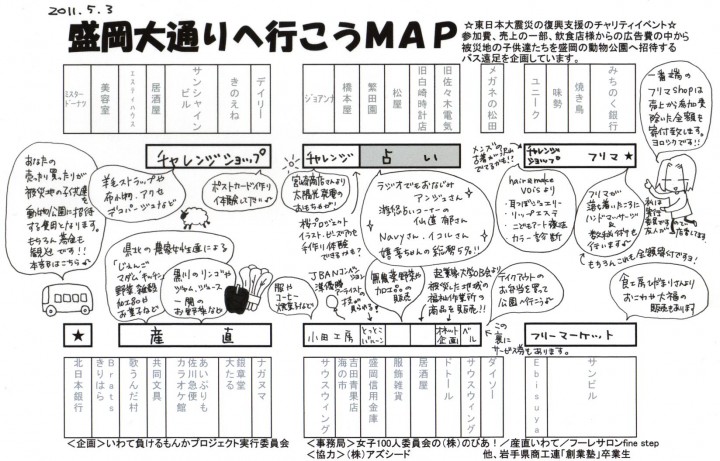 2011.5.3
盛岡大通りへ行こうMAP
☆東日本大震災の復興支援のチャリティイベント☆
参加費、売上の一部、飲食店様からの広告費の中から
被災地の子供達たちを盛岡の動物公園へ招待する
バス遠足を企画しています。
ミスタードーナツ
美容室
エスティハウス
居酒屋
サンシャインビル
きのえね
デイリー
ジョアンナ
橋本屋
繁田園
松屋
旧白崎時計店
旧佐々木電気
メガネの松田
ユニーク
味勢
焼き鳥
みちのく銀行
一番端の
フリマshopは
売上から参加費
除いた全額を
寄付致します。
ヨロシクです!!
チャレンジショップ
チャレンジ
占い
メンズの
チャレンジショップ
フリマ★
あなたの
売った買ったが
被災地の子供達を
動物公園に招待
する費用となります。
もちろん募金も
歓迎です!!
本部はこちら
羊毛ストラップや
布小物、アクセ
デコパージュなど
ポストカード作り
体験して下さい
宮崎商店さんより
太陽光発電の
おもちゃが!
桜プロジェクト
イラスト、ビーズアクセ
手作り体験
できるかも?
ラジオでおなじみ
アンジェさん
仙道有希さん
Navyさん、イコレさん
hair&make
voisより
・耳つぼジュエリー
・リップエステ
・こどもアート療法
カラー診断
フリマが
落ち着いたころに
ハンドマッサージを
行います
もちろんこれも全額寄付ですヨ!
県北の農業女性達による
「じぇんご
マダムキッチン」
野菜、雑穀
加工品や
お菓子など
黒川のリンゴや
ジャム、ジュース
一関の
お野菜など
服や
コーヒー
焼菓子など
JBANコンベンション
準優勝
アーティストの
技が
見られる
無農薬野菜や
加工品の
販売
起業家大学OB会が
被災した地域の
福祉作業所の
商品を販売!!
テイクアウトの
お弁当を買って
公園へ行こう
食工房しげまりさんより
おこわや大福の
販売もあります
この裏に
サービス券もあります。
★
産直
小田工房
とっとこバルーン
オネット企画
ベル
フリーマーケット
北日本銀行
きりはら
Brats
歌うんだ村
共同文具
カラオケ館
佐川急便
あいぶりも
大たる
鎧章堂
ナガヌマ
サウスウィング
海の市
吉田青果店
盛岡信用金庫
服飾雑貨
居酒屋
ドトール
サウスウィング
ダイソー
Ebisuya
サンビル
<企画>いわて負けるもんかプロジェクト実行委員会
<事務局>女子100人委員会の(株)のびあ!/産直いわて/フーレサロンfine step
<協力>(株)アズシード 他、岩手県商工連「創業塾」卒業生